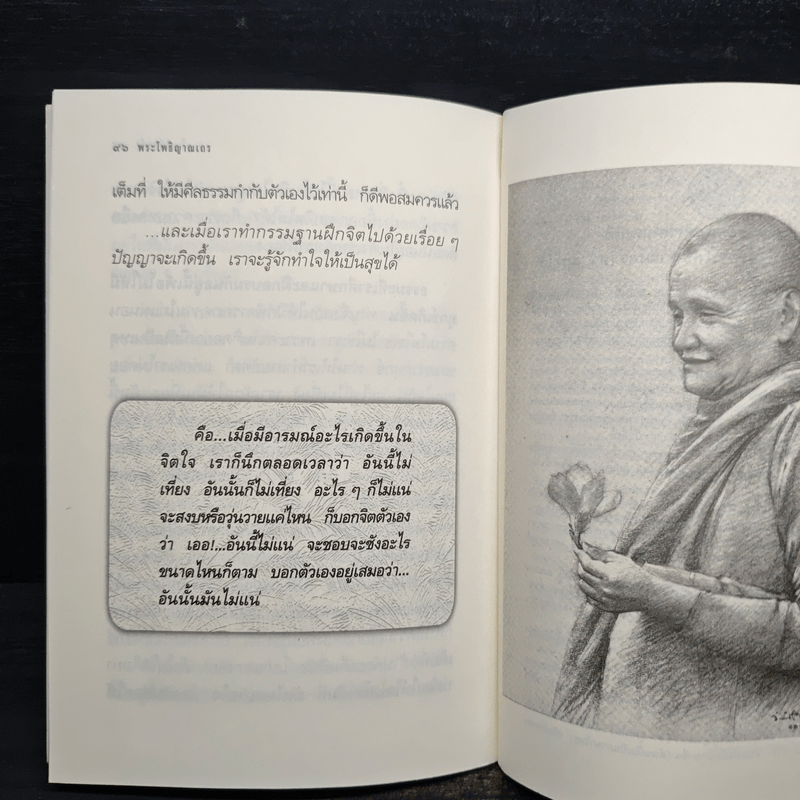 ๙๖ พระโพธิญาณเถร
เต็มที่ ให้มีศีลธรรมกำกับตัวเองไว้เท่านี้ ก็ดีพอสมควรแล้ว
...และเมื่อเราทำกรรมฐานฝึกจิตไปด้วยเรื่อย ๆ
ปัญญาจะเกิดขึ้น เราจะรู้จักทำใจให้เป็นสุขได้
คือ...เมื่อมีอารมณ์อะไรเกิดขึ้นใน
จิตใจ เราก็นึกตลอดเวลาว่า อันนี้ไม่
เที่ยง อันนั้นก็ไม่เที่ยง อะไร ๆ ก็ไม่แน่
จะสงบหรือวุ่นวายแค่ไหน ก็บอกจิตตัวเอง
ว่า เออ!...อันนี้ไม่แน่ จะชอบจะชังอะไร
ขนาดไหนก็ตาม บอกตัวเองอยู่เสมอว่า...
อันนั้นมันไม่แน่